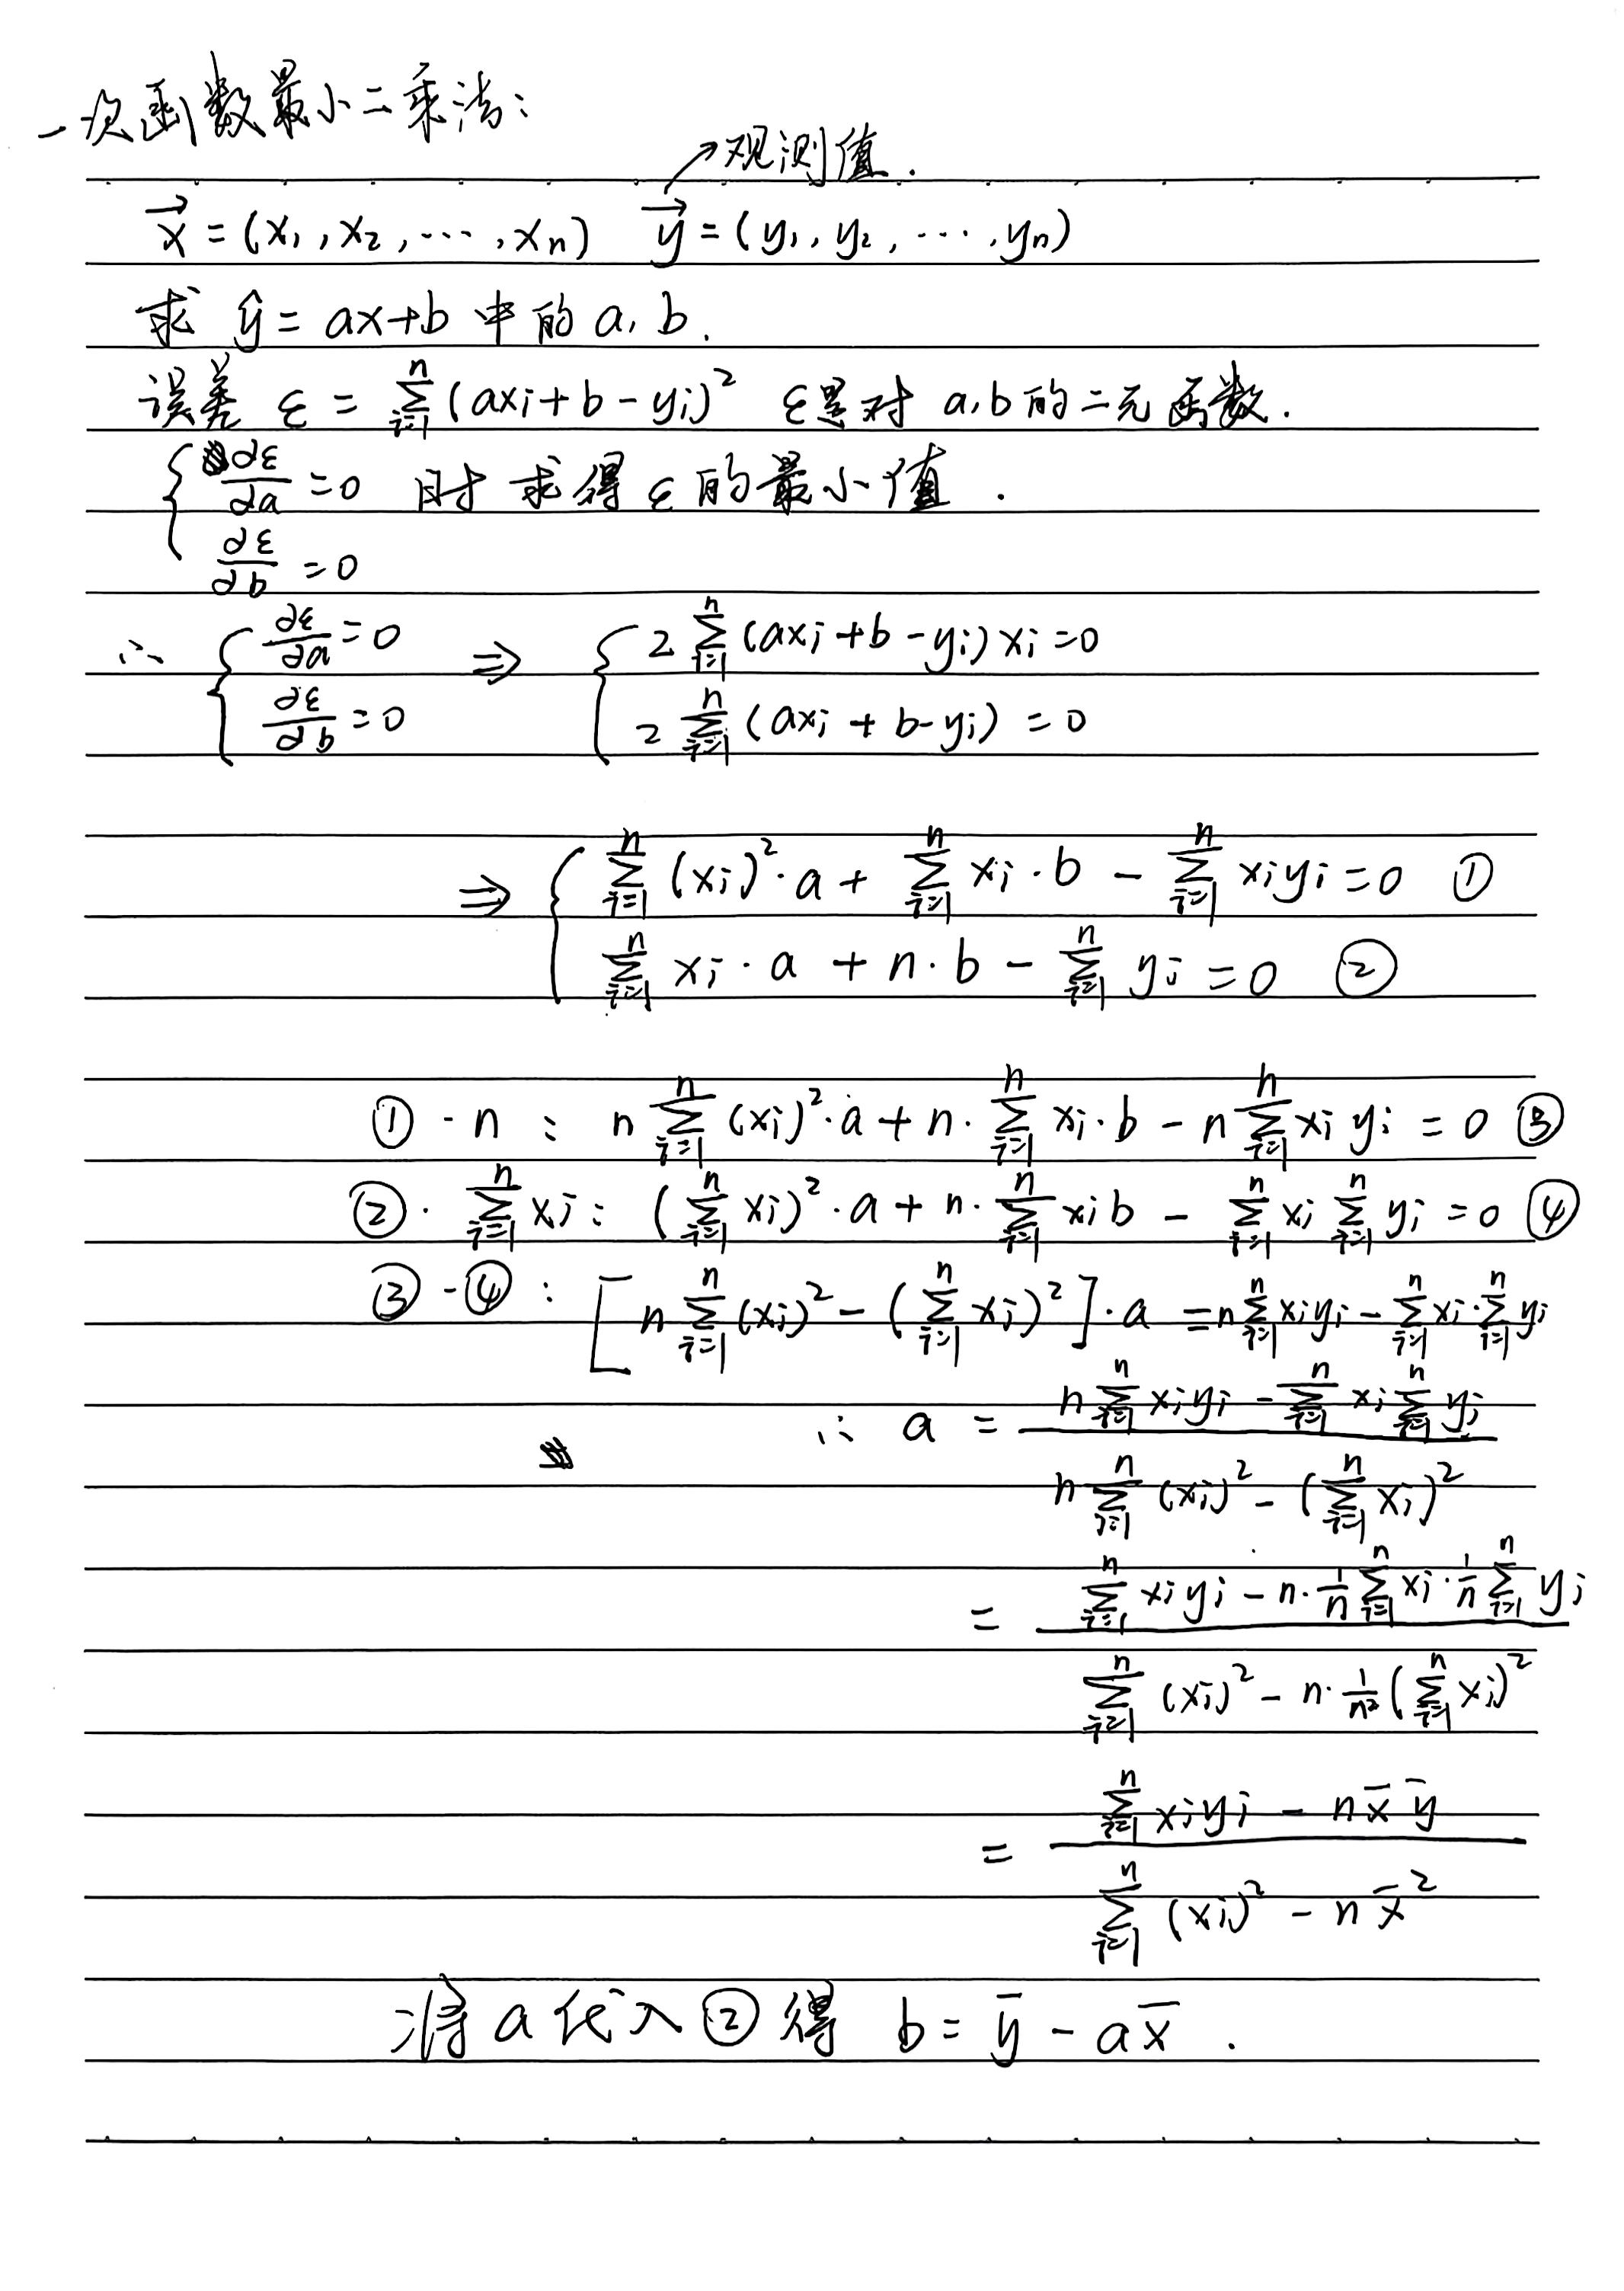 一次函数最小二乘法:
↗观测值.
x⃗ = (x₁, x₂, ⋯, xₙ)  y⃗ = (y₁, y₂, ⋯, yₙ)
求 ŷ = ax+b 中的 a, b.
误差 ε = ∑ᵢ₌₁ⁿ (axᵢ + b − yᵢ)²  ε是对 a,b 的二元函数.
{ ∂ε/∂a = 0 时 求得 ε 的最小值.
∂ε/∂b = 0
∴ { ∂ε/∂a = 0 ⇒ { 2 ∑ᵢ₌₁ⁿ (axᵢ + b − yᵢ) xᵢ = 0
∂ε/∂b = 0  2 ∑ᵢ₌₁ⁿ (axᵢ + b − yᵢ) = 0
⇒ { ∑ᵢ₌₁ⁿ (xᵢ)²·a + ∑ᵢ₌₁ⁿ xᵢ·b − ∑ᵢ₌₁ⁿ xᵢyᵢ = 0 ①
∑ᵢ₌₁ⁿ xᵢ·a + n·b − ∑ᵢ₌₁ⁿ yᵢ = 0 ②
①·n : n ∑ᵢ₌₁ⁿ (xᵢ)²·a + n·∑ᵢ₌₁ⁿ xᵢ·b − n ∑ᵢ₌₁ⁿ xᵢyᵢ = 0 ③
②·∑ᵢ₌₁ⁿ xᵢ: (∑ᵢ₌₁ⁿ xᵢ)²·a + n·∑ᵢ₌₁ⁿ xᵢb − ∑ᵢ₌₁ⁿ xᵢ ∑ᵢ₌₁ⁿ yᵢ = 0 ④
③-④ : [n ∑ᵢ₌₁ⁿ (xᵢ)² − (∑ᵢ₌₁ⁿ xᵢ)²]·a = n ∑ᵢ₌₁ⁿ xᵢyᵢ − ∑ᵢ₌₁ⁿ xᵢ·∑ᵢ₌₁ⁿ yᵢ
∴ a = (n ∑ᵢ₌₁ⁿ xᵢyᵢ − ∑ᵢ₌₁ⁿ xᵢ ∑ᵢ₌₁ⁿ yᵢ) / (n ∑ᵢ₌₁ⁿ (xᵢ)² − (∑ᵢ₌₁ⁿ xᵢ)²)
= (∑ᵢ₌₁ⁿ xᵢyᵢ − n·1/n ∑ᵢ₌₁ⁿ xᵢ·1/n ∑ᵢ₌₁ⁿ yᵢ) / (∑ᵢ₌₁ⁿ (xᵢ)² − n·1/n² (∑ᵢ₌₁ⁿ xᵢ)²)
= (∑ᵢ₌₁ⁿ xᵢyᵢ − n x̄ ȳ) / (∑ᵢ₌₁ⁿ (xᵢ)² − n x̄²)
将 a 代入 ② 得 b = ȳ − a x̄.